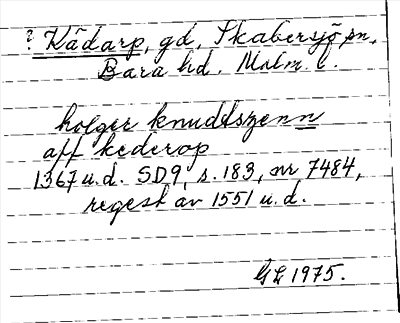 ? Kådarp, gd, Skabersjö sn,
Bara hd. Malm. l.
holger knuddszenn
aff kederop
1367 u.d. SD9, s. 183, nr 7484,
regest av 1551 u.d.
GL 1975.